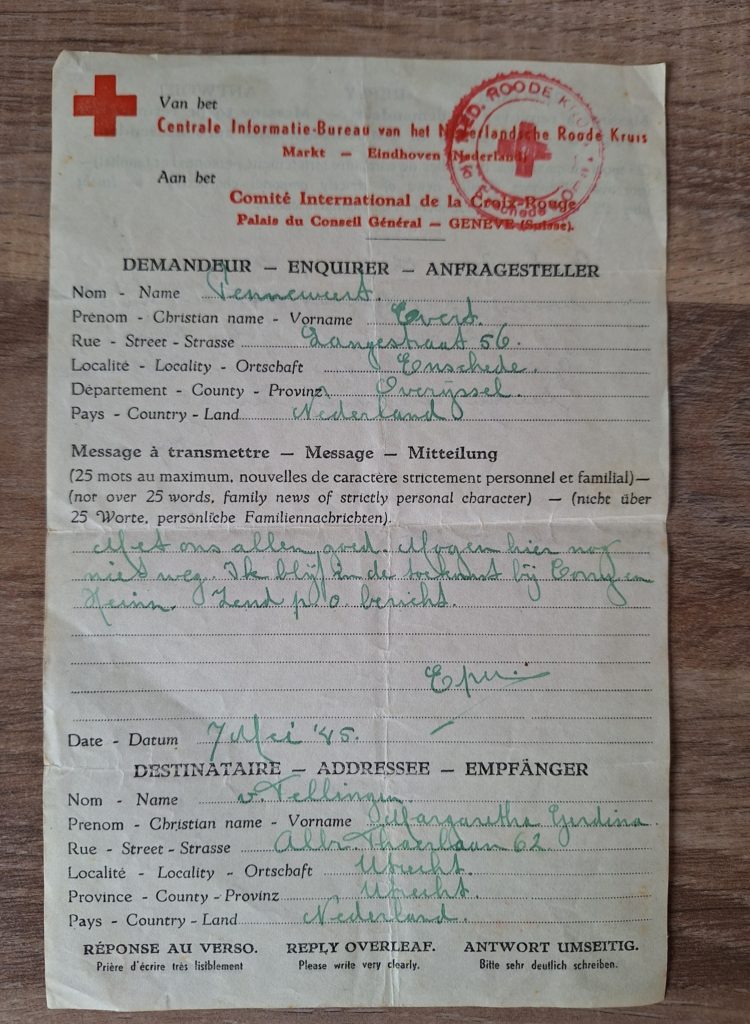 Van het
Centrale Informatie-Bureau van het Nederlandsche Roode Kruis
Markt — Eindhoven (Nederland)
Aan het
Comité International de la Croix-Rouge
Palais du Conseil Général — GENÈVE (Suisse).
NED. ROODE KRUIS
Enschede
DEMANDEUR — ENQUIRER — ANFRAGESTELLER
Nom - Name Tennewert.
Prénom - Christian name - Vorname Evert.
Rue - Street - Strasse Langestraat 56.
Localité - Locality - Ortschaft Enschede.
Département - County - Provinz Overijssel.
Pays - Country - Land Nederland
Message à transmettre — Message — Mitteilung
(25 mots au maximum, nouvelles de caractère strictement personnel et familial)—
(not over 25 words, family news of strictly personal character) — (nicht über
25 Worte, persönliche Familiennachrichten).
Met ons allen goed. Mogen hier nog
niet weg. Ik blijf in de toekomst bij Corry en
Heinn. Zend p. o. bericht.
Date - Datum 7 Mei '45.
DESTINATAIRE — ADDRESSEE — EMPFÄNGER
Nom - Name v. Tellingen.
Prenom - Christian name - Vorname Margaretha Gerdina.
Rue - Street - Strasse Albr. Thaerlaan 62
Localité - Locality - Ortschaft Utrecht.
Province - County - Provinz Utrecht.
Pays - Country - Land Nederland.
RÉPONSE AU VERSO. REPLY OVERLEAF. ANTWORT UMSEITIG.
Prière d'écrire très lisiblement Please write very clearly. Bitte sehr deutlich schreiben.